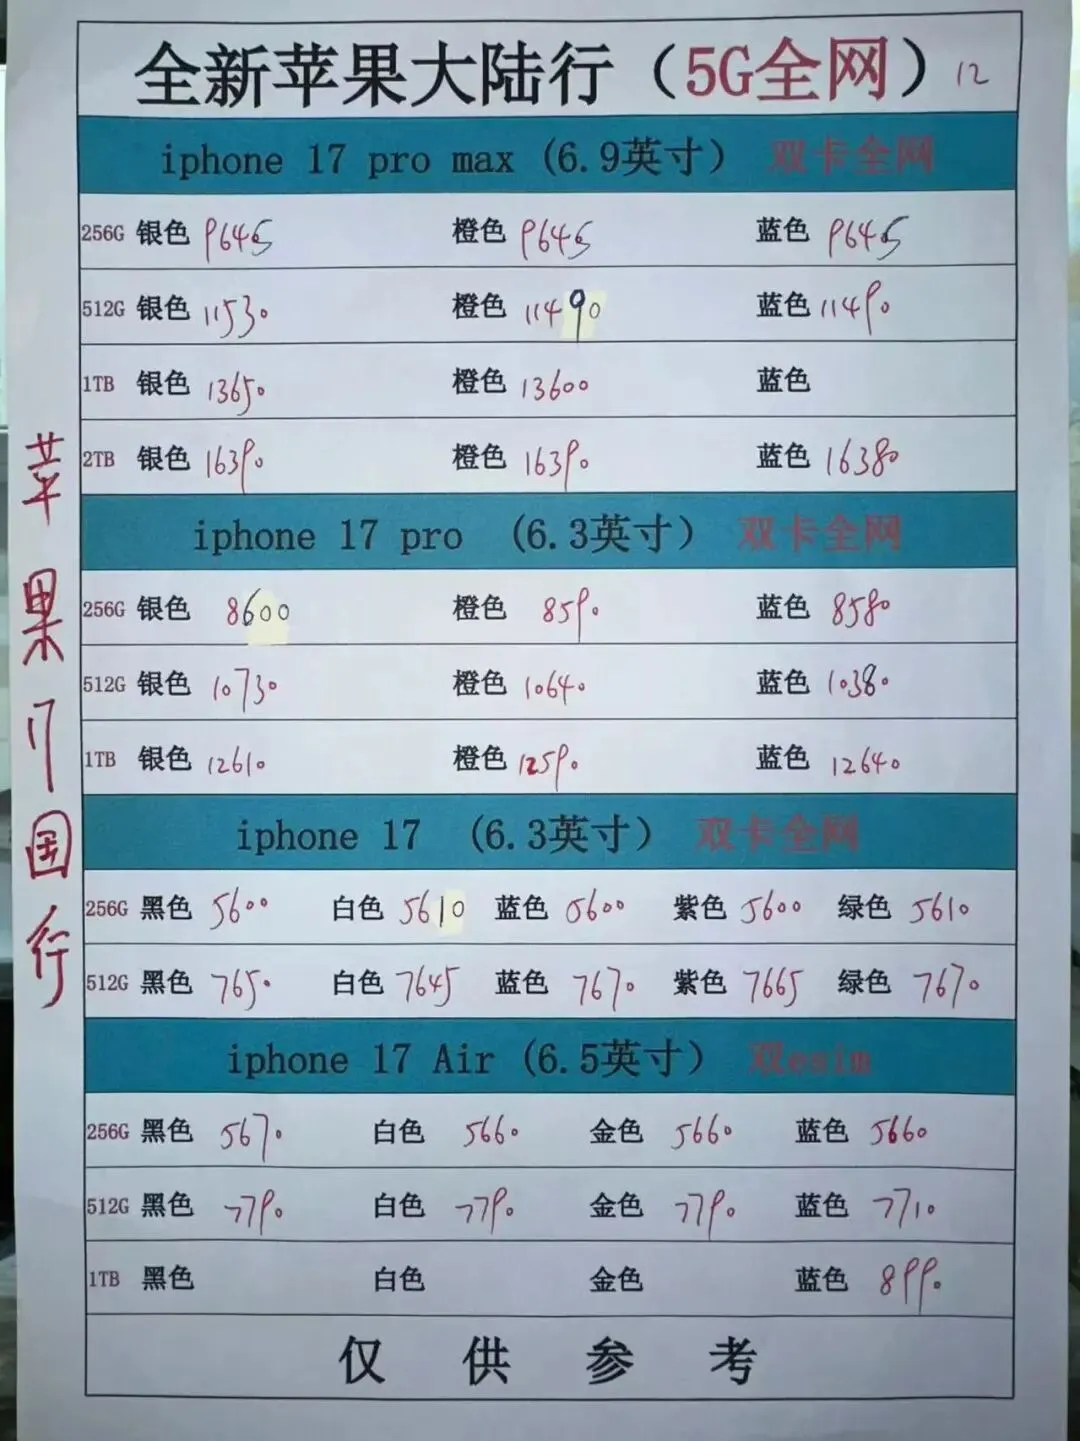 全新苹果大陆行（5G全网）12
iphone 17 pro max (6.9英寸） 双卡全网
256G 银色 9645 橙色 9645 蓝色 9645
512G 银色 11530 橙色 11490 蓝色 11490
1TB 银色 13650 橙色 13600 蓝色
2TB 银色 16390 橙色 16390 蓝色 16380
iphone 17 pro (6.3英寸） 双卡全网
256G 银色 8600 橙色 8590 蓝色 8580
512G 银色 10730 橙色 10640 蓝色 10380
1TB 银色 12610 橙色 12590 蓝色 12640
iphone 17 (6.3英寸） 双卡全网
256G 黑色 5600 白色 5610 蓝色 5600 紫色 5600 绿色 5610
512G 黑色 7650 白色 7645 蓝色 7670 紫色 7665 绿色 7670
iphone 17 Air (6.5英寸） 双esim
256G 黑色 5670 白色 5660 金色 5660 蓝色 5660
512G 黑色 7790 白色 7790 金色 7790 蓝色 7710
1TB 黑色 白色 金色 蓝色 8990
仅供参考
苹果17国行